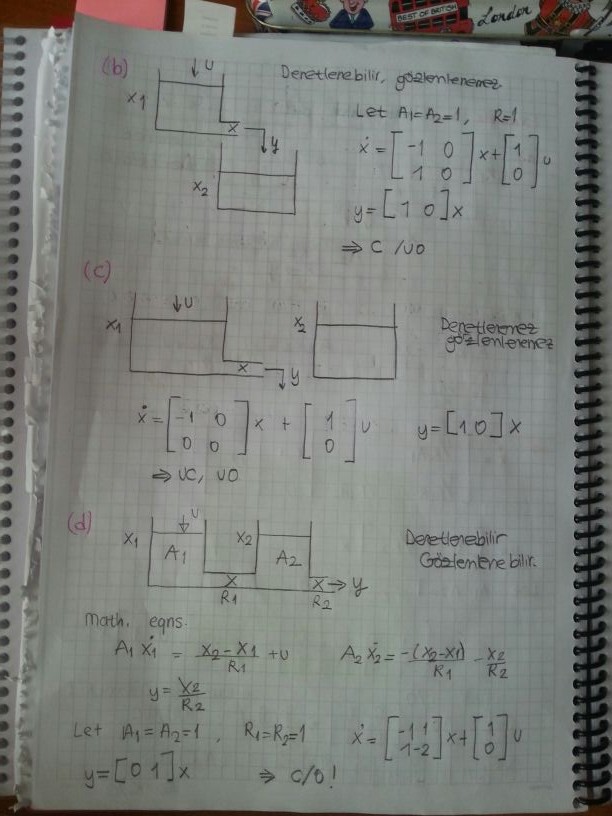 BEST OF BRITISH
London
(b)
U
Denetlenebilir, gözlenlenemez
x1
Let A1=A2=1, R=1
x
y
ẋ = [-1 0
1 0] x + [1
0] u
x2
y = [1 0] x
⇒ C /UO
(c)
U
x1
x2
Denetlenemez
gözlenlenemez
x
y
ẋ = [-1 0
0 0] x + [1
0] u
y = [1 0] x
⇒ UC, UO
(d)
U
x1
A1
x2
A2
Denetlenebilir
Gözlenlenebilir.
x
R1
x
R2
y
Math. eqns.
A1 ẋ1 = x2-x1/R1 + u
A2 ẋ2 = -(x2-x1)/R1 - x2/R2
y = x2/R2
Let A1=A2=1, R1=R2=1
ẋ = [-1 1
1 -2] x + [1
0] u
y = [0 1] x
⇒ C/O!